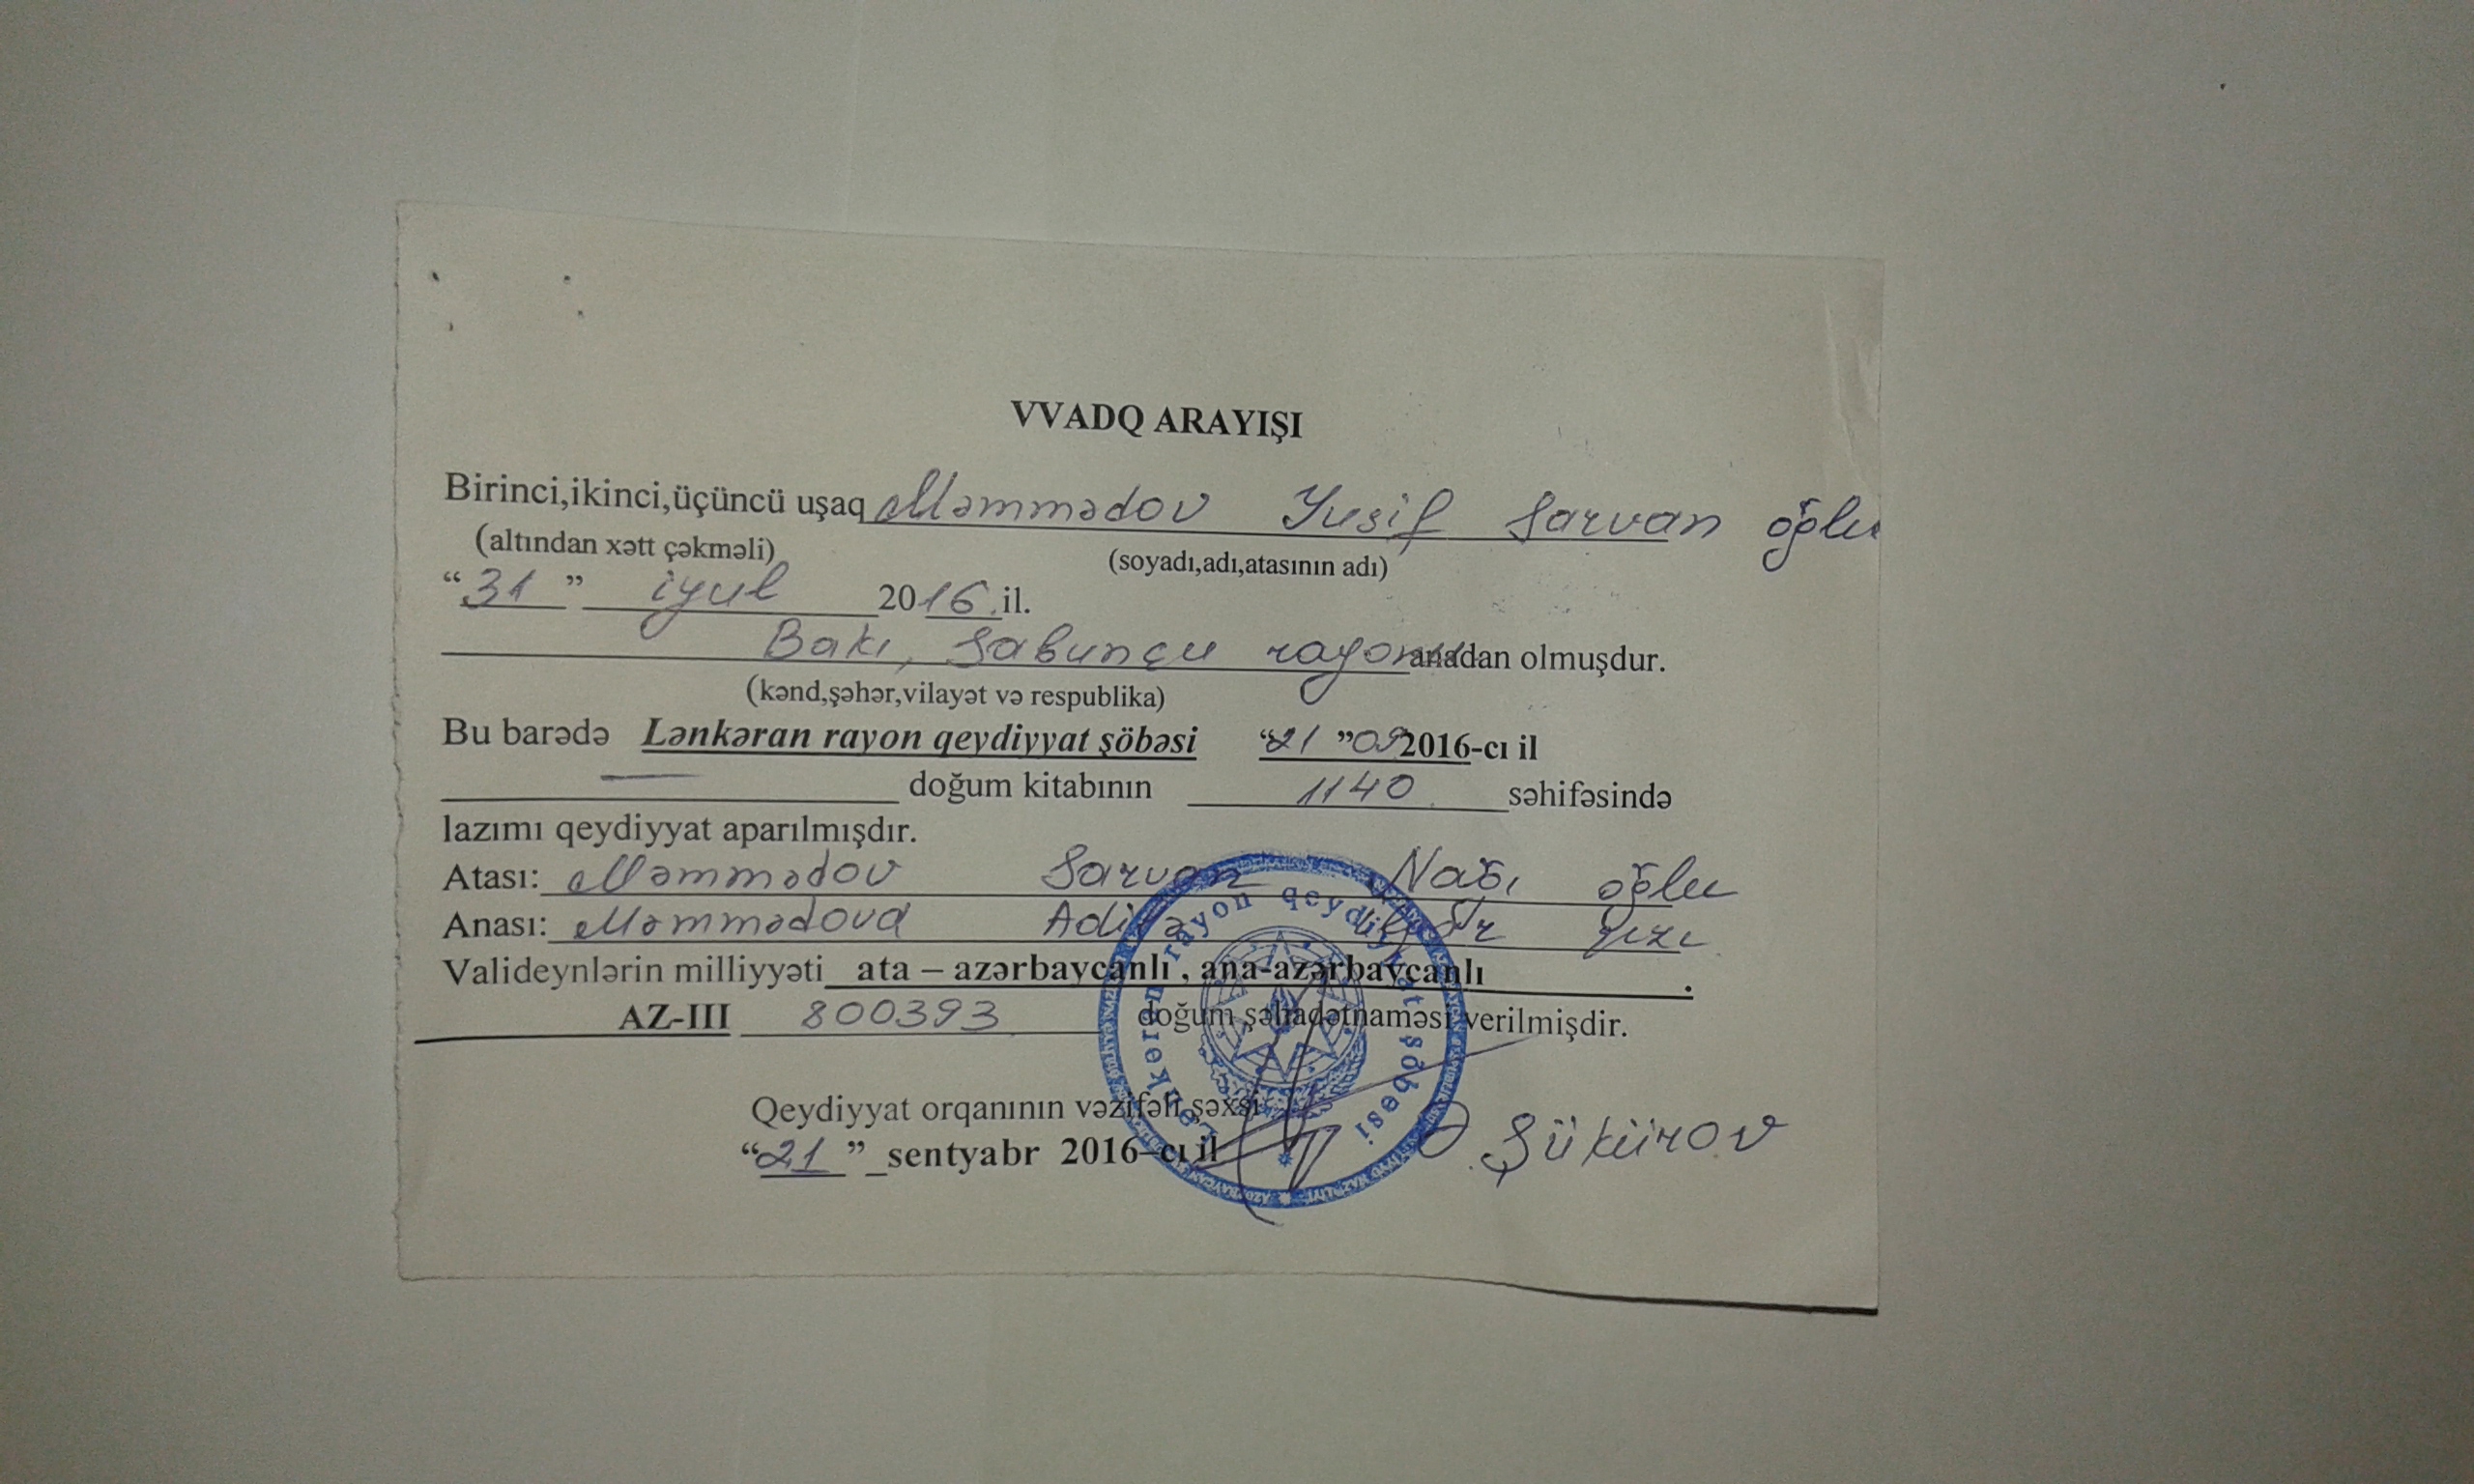 VVADQ ARAYIŞI
Birinci,ikinci,üçüncü uşaq Məmmədov Yusif Sarvan oğlu
(altından xətt çəkməli) (soyadı,adı,atasının adı)
“31” iyul 2016.il.
Bakı, Sabunçu rayonu anadan olmuşdur.
(kənd,şəhər,vilayət və respublika)
Bu barədə Lənkəran rayon qeydiyyat şöbəsi “21”09 2016-cı il
doğum kitabının 1140 səhifəsində
lazımı qeydiyyat aparılmışdır.
Atası: Məmmədov Sarvan Nağı oğlu
Anası: Məmmədova qızı
Valideynlərin milliyyəti ata – azərbaycanlı , ana-azərbaycanlı .
AZ-III 800393 doğum şəhadətnaməsi verilmişdir.
Qeydiyyat orqanının vəzifəli şəxsi
“21”_sentyabr 2016–cı il Şükürov
Lənkəran rayon qeydiyyat şöbəsi